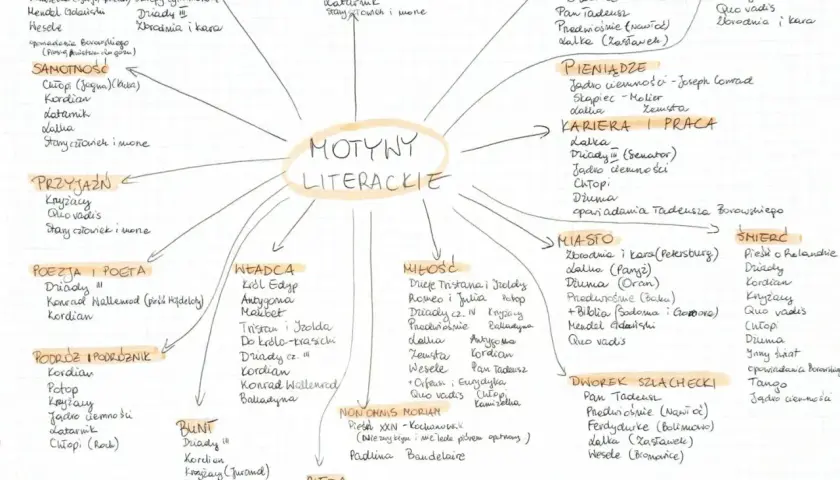 Mendel Gdański
Wesele
opowiadania Borowskiego
Dziady III
Zbrodnia i kara
Latarnik
Stary człowiek i morze
Pan Tadeusz
Przedwiośnie (Nawłoć)
Lalka (Zasławek)
Quo vadis
Zbrodnia i kara
SAMOTNOŚĆ
Chłopi (Jagna) (Kuba)
Kordian
Latarnik
Lalka
Stary człowiek i morze
PRZYJAŹŃ
Krzyżacy
Quo vadis
Stary człowiek i morze
POEZJA I POETA
Dziady III
Konrad Wallenrod (pieśń Hajdeloty)
Kordian
PODRÓŻ I PODRÓŻNIK
Kordian
Potop
Krzyżacy
Jądro ciemności
Latarnik
Chłopi (Roch)
MOTYWY
LITERACKIE
BUNT
Dziady III
Kordian
Krzyżacy (Jurand)
WŁADCA
Król Edyp
Antygona
Makbet
Tristan i Izolda
Do króla - Krasicki
Dziady cz. III
Kordian
Konrad Wallenrod
Balladyna
NON OMNIS MORIAR
Pieśń XXIV - Kochanowski
(Niezwykłym i nie leda piórem opatrzony)
Padlina Baudelaire
MIŁOŚĆ
Dzieje Tristana i Izoldy
Romeo i Julia Potop
Dziady cz. IV Krzyżacy
Przedwiośnie Balladyna
Lalka Antygona
Zemsta Kordian
Wesele Pan Tadeusz
+ Orfeusz i Eurydyka
Quo vadis Chłopi
Kamizelka
PIENIĄDZE
Jądro ciemności - Joseph Conrad
Skąpiec - Molier
Lalka Zemsta
KARIERA I PRACA
Lalka
Dziady III (Senator)
Jądro ciemności
Chłopi
Dżuma
opowiadania Tadeusza Borowskiego
MIASTO
Zbrodnia i kara (Petersburg)
Lalka (Paryż)
Dżuma (Oran)
Przedwiośnie (Baku)
+ Biblia (Sodoma i Gomora)
Mendel Gdański
Quo vadis
ŚMIERĆ
Pieśń o Rolandzie
Dziady
Kordian
Krzyżacy
Quo vadis
Chłopi
Dżuma
Inny świat
opowiadania Borowskiego
Tango
Jądro ciemności
DWOREK SZLACHECKI
Pan Tadeusz
Przedwiośnie (Nawłoć)
Ferdydurke (Bolimowo)
Lalka (Zasławek)
Wesele (Bronowice)